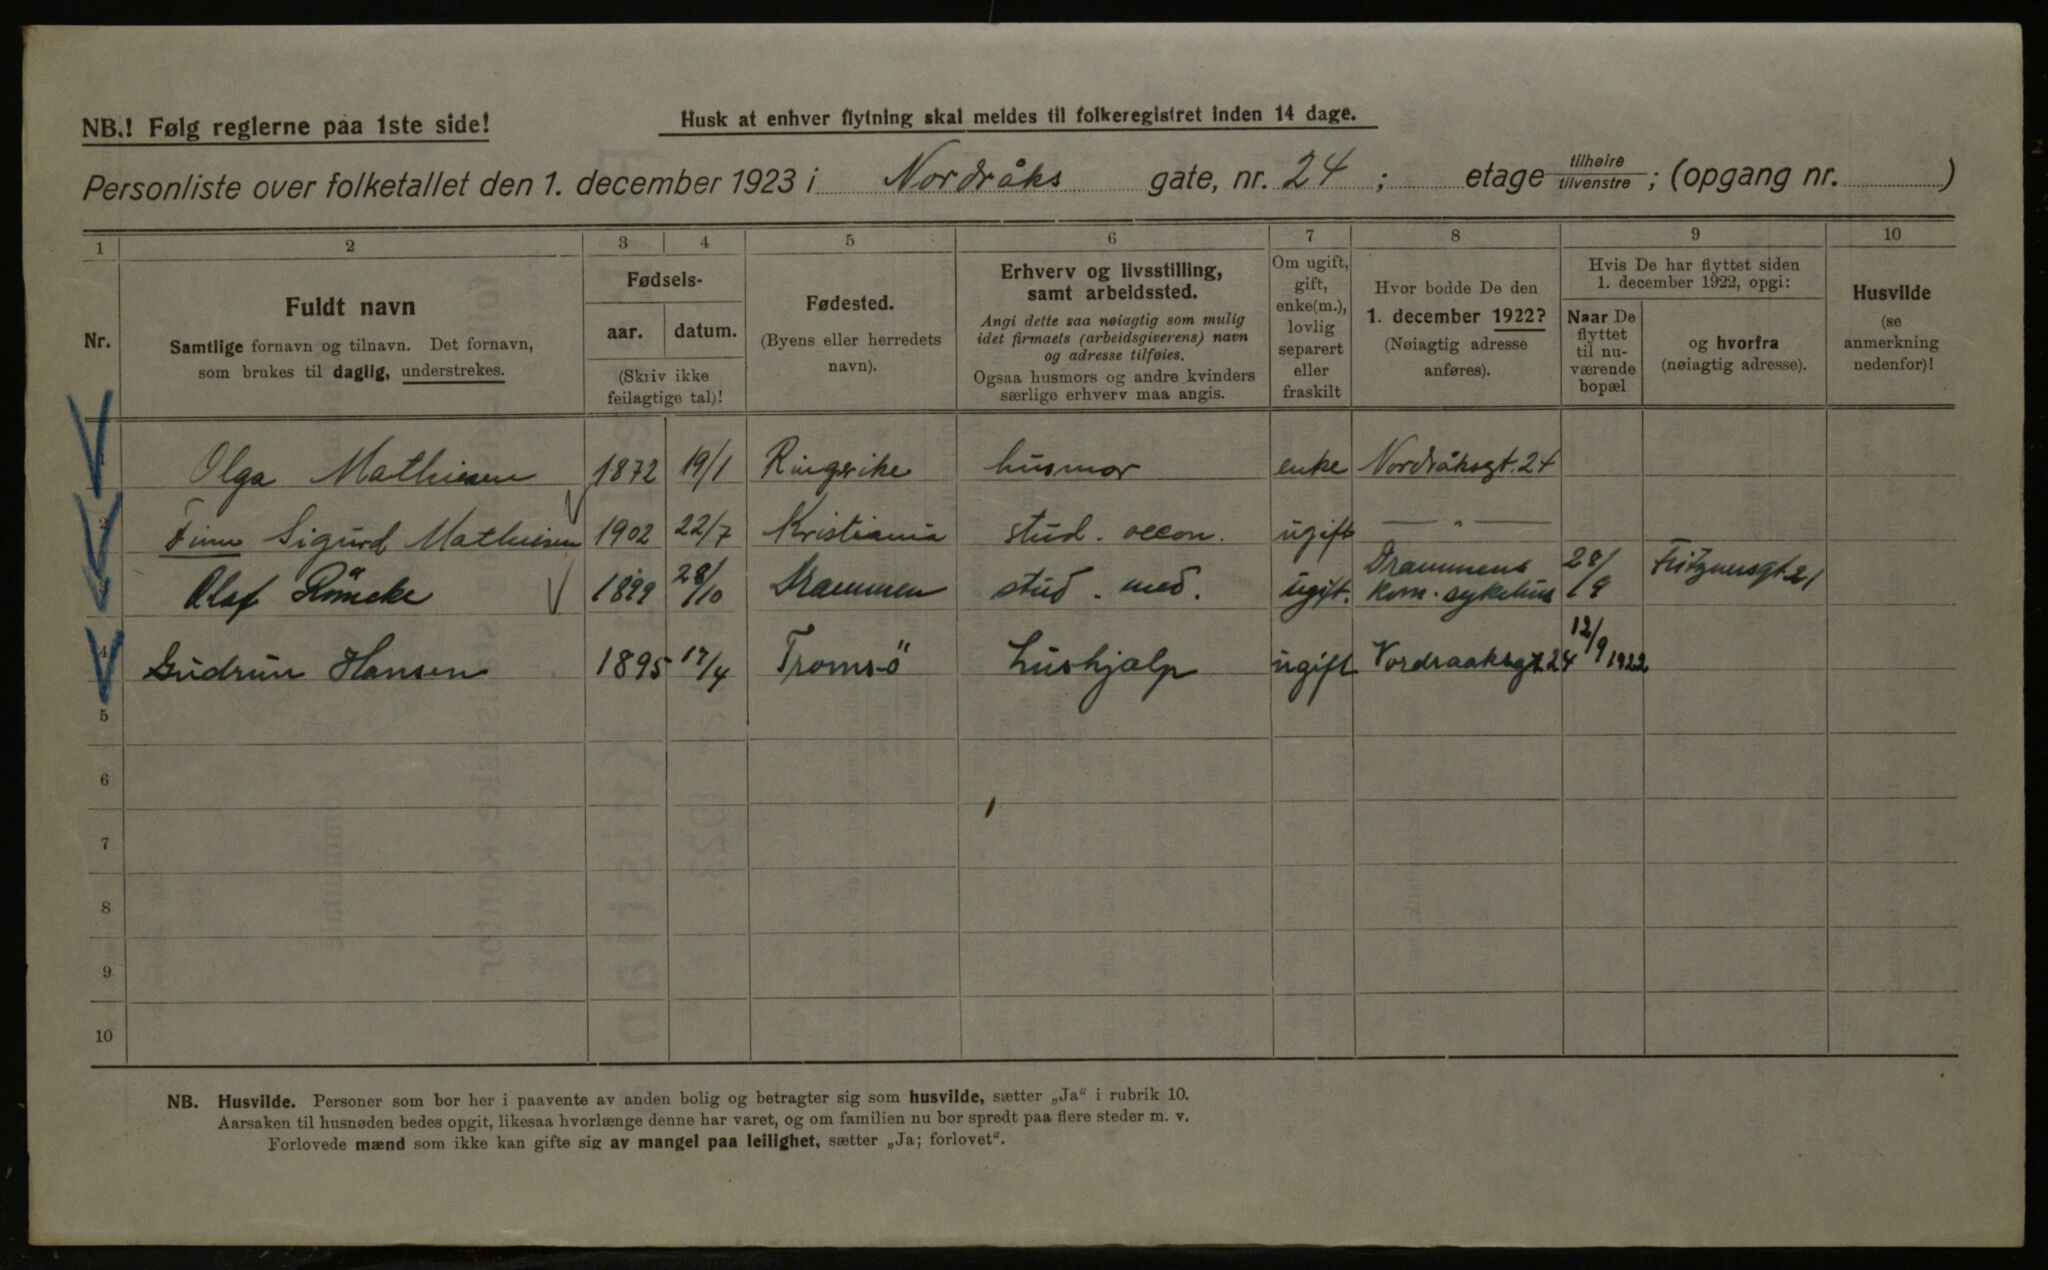 NB.! Følg reglerne paa 1ste side!
Husk at enhver flytning skal meldes til folkeregistret inden 14 dage.
Personliste over folketallet den 1. december 1923 i Nordråks gate, nr. 24 ; etage tilhøire tilvenstre ; (opgang nr. )
1 2 3 4 5 6 7 8 9 10
Nr.
Fuldt navn
Samtlige fornavn og tilnavn. Det fornavn,
som brukes til daglig, understrekes.
Fødsels-
aar. datum.
(Skriv ikke
feilagtige tal)!
Fødested.
(Byens eller herredets
navn).
Erhverv og livsstilling,
samt arbeidssted.
Angi dette saa nøiagtig som mulig
idet firmaets (arbeidsgiverens) navn
og adresse tilføies.
Ogsaa husmors og andre kvinders
særlige erhverv maa angis.
Om ugift,
gift,
enke(m.),
lovlig
separert
eller
fraskilt
Hvor bodde De den
1. december 1922?
(Nøiagtig adresse
anføres).
Hvis De har flyttet siden
1. december 1922, opgi:
Naar De
flyttet
til nu-
værende
bopæl
og hvorfra
(nøiagtig adresse).
Husvilde
(se
anmerkning
nedenfor)!
1 Olga Mathiesen 1872 19/1 Ringerike husmor enke Nordråksgt. 24
2 Finn Sigurd Mathiesen 1902 22/7 Kristiania stud. oecon. ugift — " —
3 Olaf Römcke 1899 28/10 Drammen stud. med. ugift. Drammens kom. sykehus 28/9 21
4 Gudrun Hansen 1895 17/4 Tromsö hushjælp ugift Nordraaksgt 24 12/9 1922
5
6
7
8
9
10
NB. Husvilde. Personer som bor her i paavente av anden bolig og betragter sig som husvilde, sætter „Ja“ i rubrik 10.
Aarsaken til husnøden bedes opgit, likesaa hvorlænge denne har varet, og om familien nu bor spredt paa flere steder m. v.
Forlovede mænd som ikke kan gifte sig av mangel paa leilighet, sætter „Ja; forlovet“.